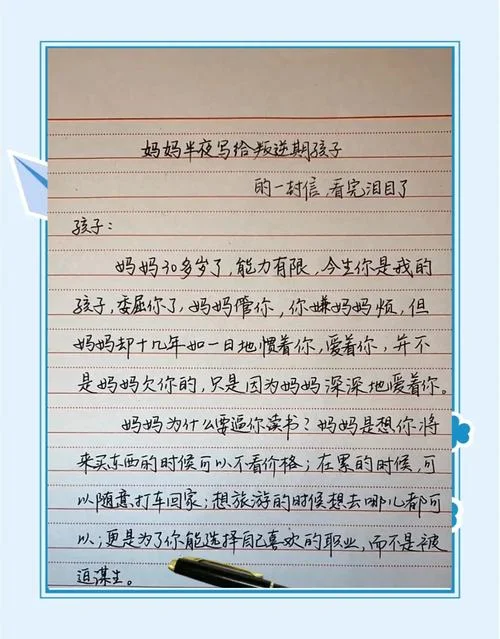 妈妈半夜写给叛逆期孩子
的一封信,看完泪目了
孩子:
妈妈30多岁了,能力有限,今生你是我的
孩子,委屈你了,妈妈管你,你嫌妈妈烦,但
妈妈却十几年如一日地惯着你,爱着你,并不
是妈妈欠你的,只是因为妈妈深深地爱着你。
妈妈为什么要逼你读书?妈妈是想你将
来买东西的时候可以不看价格;在累的时候,可
以随意打车回家;想旅游的时候想去哪儿都可
以;更是为了你能选择自己喜欢的职业,而不是被
迫谋生。